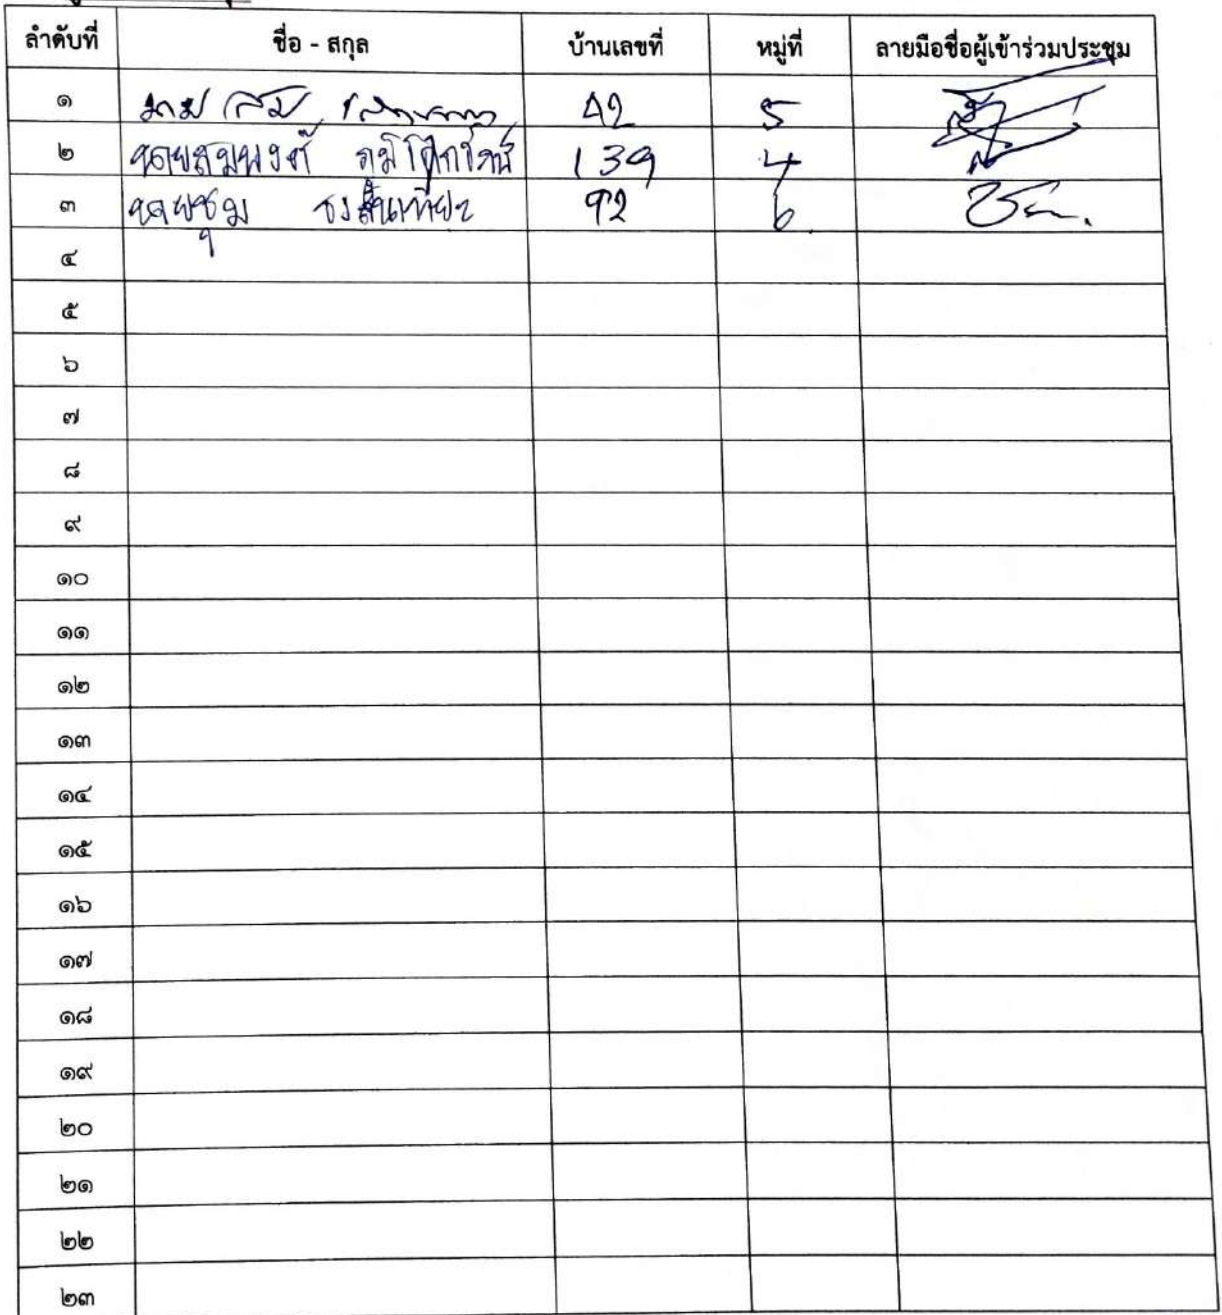 ลำดับที่ ชื่อ - สกุล บ้านเลขที่ หมู่ที่ ลายมือชื่อผู้เข้าร่วมประชุม
๑ 42 5
๒ นายสมพงศ์ 139 4
๓ นายชุม 92 6
๔
๕
๖
๗
๘
๙
๑๐
๑๑
๑๒
๑๓
๑๔
๑๕
๑๖
๑๗
๑๘
๑๙
๒๐
๒๑
๒๒
๒๓